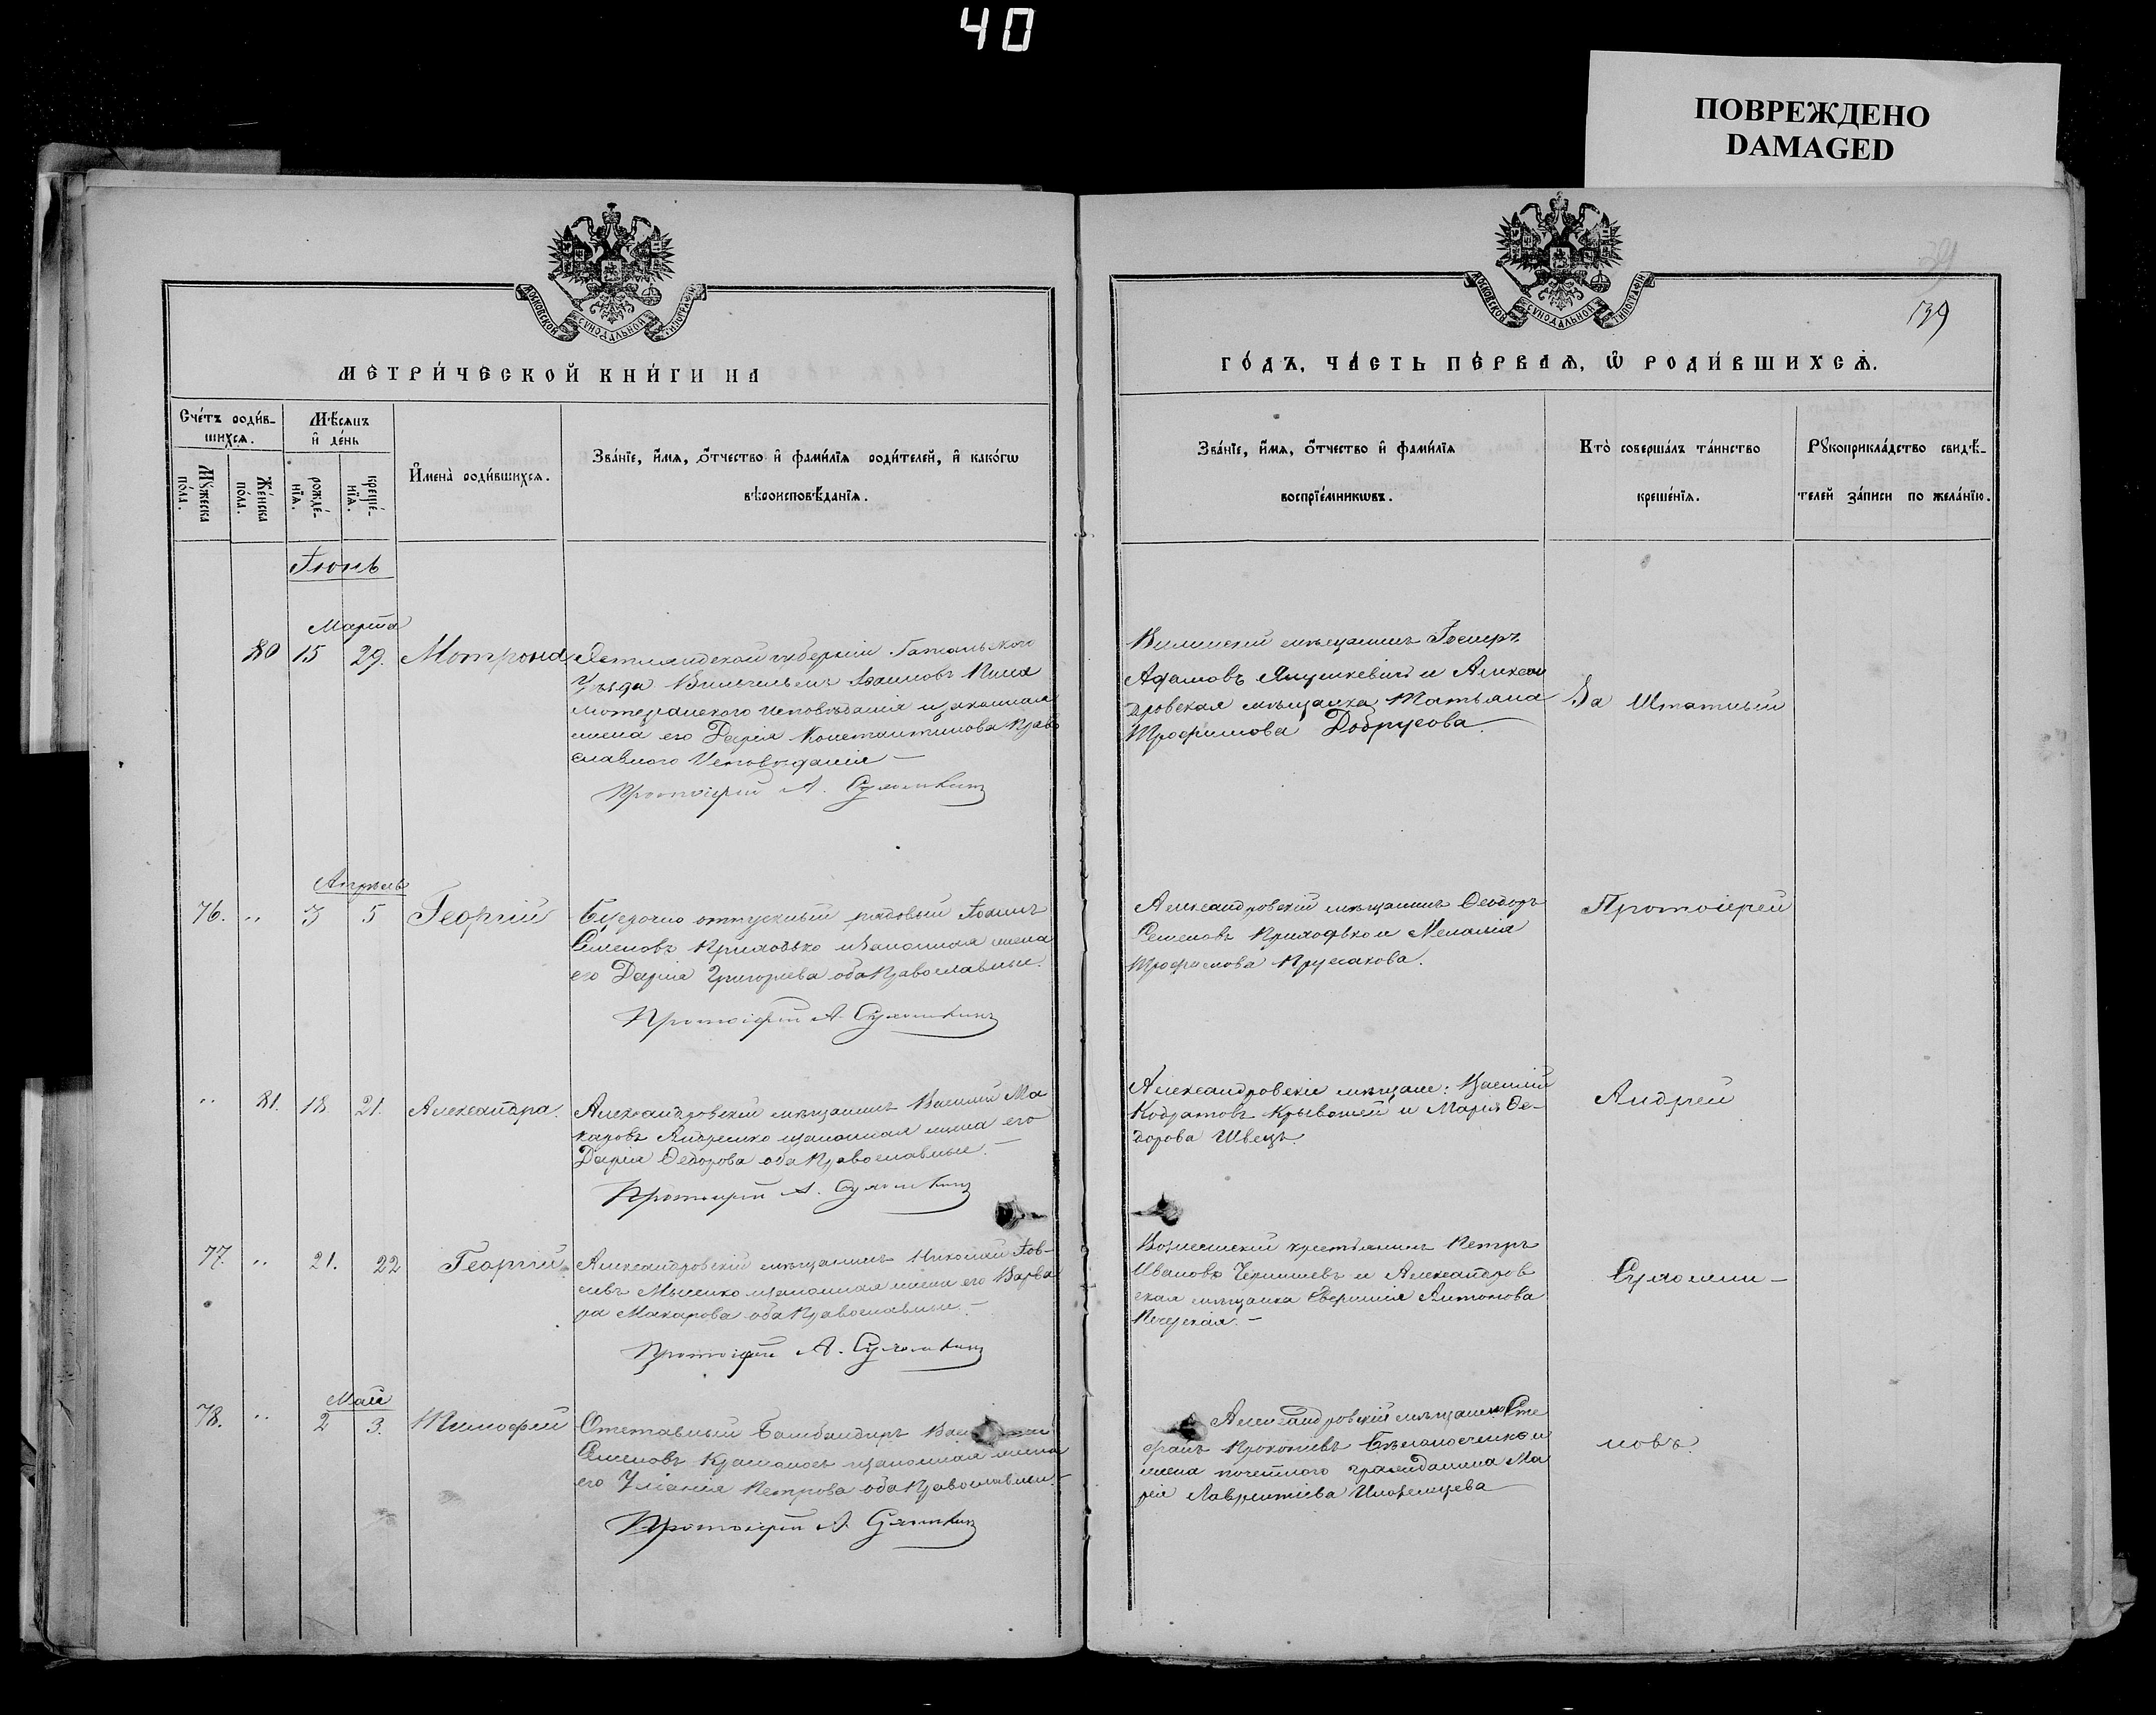 40
ПОВРЕЖДЕНО
DAMAGED
МОСКОВСКОЙ СѴНОДАЛЬНОЙ ТИПОГРАФІИ
МОСКОВСКОЙ СѴНОДАЛЬНОЙ ТИПОГРАФІИ
139
МЕТРИ́ЧЕСКОЙ КНИ́ГИ НА
ГО́ДЪ, ЧА́СТЬ ПЕ́РВАѦ, Ѡ РОДИ́ВШИХСѦ.
Сче́тъ роди́в-
шихсѧ.
Му́жеска
по́ла.
Же́нска
по́ла.
Мѣ́сѧцъ
и де́нь
рожде́-
нїѧ.
креще́-
нїѧ.
Имена̀ роди́вшихсѧ.
Зва́нїе, и́мѧ, о́тчество и фами́лїѧ роди́телей, и како́гѡ
вѣроисповѣ́данїѧ.
Зва́нїе, и́мѧ, о́тчество и фами́лїѧ
воспрїе́мникѡвъ.
Кто̀ соверша́лъ та́инство
креще́нїѧ.
Рꙋкоприкла́дство свидѣ́-
телей за́писи по жела́нїю.
Іюнь
Марта
80 15 29. Мотрона
Естляндской губерніи
Уѣзда Вильгельмъ Іоанновъ
лютеранскаго исповѣданія и законная
жена его Дарія Константинова Право
славнаго Исповѣданія —
Протоіерей А.
Виленскій мѣщанинъ
Адамовъ Янушкевичъ и Алексан
дровская мѣщанка Татьяна
Трофимова Добрусова
За Штатный
Апрѣль
76. " 3 5 Георгій
Безсрочно отпускный рядовый Іоаннъ
Семеновъ Приходько и законная жена
его Дарія Григорьева оба Православные.
Протоіерей А.
Александровскій мѣщанинъ Ѳеодоръ
Семеновъ Приходько и Меланія
Трофимова Прусакова.
Протоіерей
" 81. 18 21. Александра.
Александровскій мѣщанинъ Василій Ма
каровъ Андреенко и законная жена его
Дарія Ѳедорова оба Православные. —
Протоіерей А.
Александровскіе мѣщане: Василій
Кодратовъ Крывошей и Марія Ѳе-
дорова Швецъ.
Андрей
77. " 21. 22 Георгій.
Александровскій мѣщанинъ Николай Іов-
левъ Мысенко и законная жена его Варва
ра Макарова оба Православные. —
Протоіерей А.
Вознесенскій крестьянинъ Петръ
Ивановъ Чернышевъ и Александров
ская мѣщанка Антонова
Печерская. —
Сухомли —
Май
78. " 2 3. Тимофей
Отставный Бомбандиръ
Семеновъ и законная жена
его Уліанія Петрова оба Православные. —
Протоіерей А.
Александровскій мѣщанинъ Сте
фанъ Прокопіевъ и
жена почетного гражданина Ма
рія Лаврентіева Иноземцева
новъ.